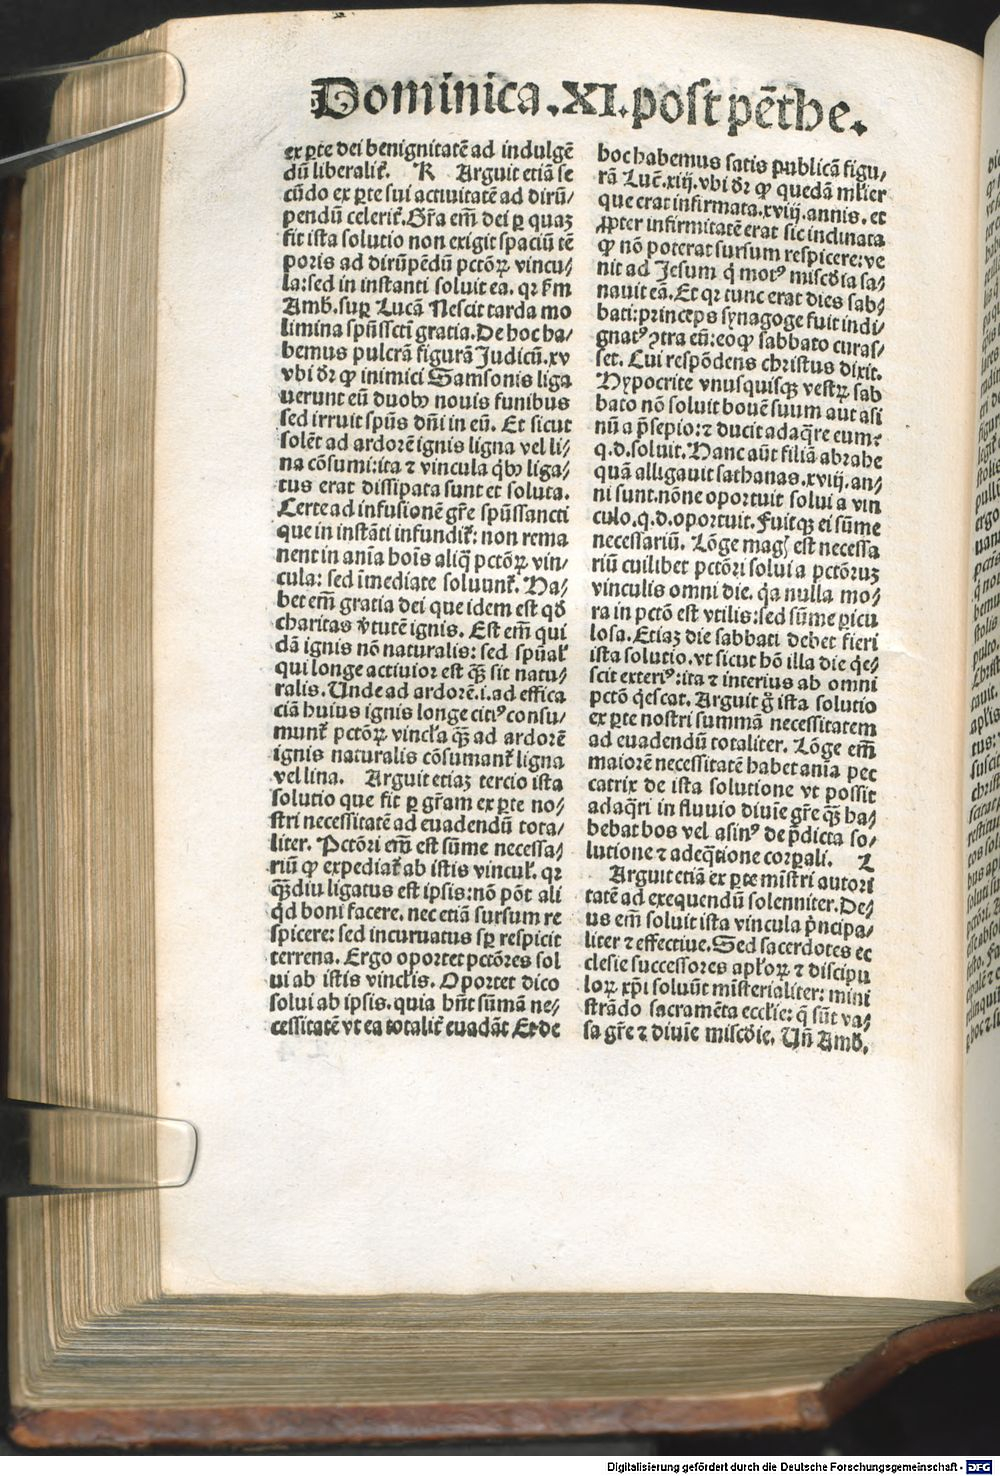 Dominica .XI. post pēthe.
ex ꝑte dei benignitatē ad indulgē
dū liberalit᷑. K Arguit etiā se
cūdo ex ꝑte sui actiuitatē ad dirū/
pendū celerit᷑. Gr̄a em̄ dei ꝑ quaꝫ
fit ista solutio non exigit spaciū tē
poris ad dirūpēdū pctōꝝ vincu/
la: sed in instanti soluit ea. qꝛ ẜm
Amb. suꝑ Lucā Nescit tarda mo
limina spūssctī gratia. De hoc ha/
bemus pulcrā figurā Judicū. xv
vbi dꝛ ꝙ inimici Samsonis liga
uerunt eū duobꝰ nouis funibus
sed irruit spūs dn̄i in eū. Et sicut
solēt ad ardorē ignis ligna vel li/
na cōsumi: ita ⁊ vincula qͥbꝰ liga/
tus erat dissipata sunt et soluta.
Certe ad infusionē gr̄e spūssancti
que in instāti infundit᷑: non rema
nent in anīa hoīs aliqͣ pctōꝝ vin/
cula: sed īmediate soluunt᷑. Ha/
bet em̄ gratia dei que idem est qd̛
charitas v̛tutē ignis. Est em̄ qui
dā ignis nō naturalis: sed spūal᷑
qui longe actiuior est qꝫ̄ sit natu/
ralis. Unde ad ardorē .i. ad effica
ciā huius ignis longe citiꝰ consu/
munt᷑ pctōꝝ vincl̄a qꝫ̄ ad ardorē
ignis naturalis cōsumant᷑ ligna
vel lina. Arguit etiaꝫ tercio ista
solutio que fit ꝑ gr̄am ex ꝑte no/
stri necessitatē ad euadendū tota/
liter. Pctōri em̄ est sūme necessa/
riū ꝙ expediat᷑ ab istis vincul᷑. qꝛ
qꝫ̄diu ligatus est ipsis: nō pōt ali
qͥd boni facere. nec etiā sursum re
spicere: sed incuruatus sꝑ respicit
terrena. Ergo oportet pctōres sol
ui ab istis vincl̄is. Oportet dico
solui ab ipsis. quia hn̄t sūmā ne/
cessitatē vt ea totalit᷑ euadāt Et de
hoc habemus satis publicā figu/
rā Luc̄. xiij. vbi dꝛ ꝙ quedā ml̄ier
que erat infirmata. xviij. annis. et
ꝓpter infirmitatē erat sic inclinata
ꝙ nō poterat sursum respicere: ve
nit ad Jesum qͥ motꝰ misc̄dia sa/
nauit eā. Et qꝛ tunc erat dies sab/
bati: princeps synagoge fuit indi/
gnatꝰ ꝯtra eū: eo ꝙ sabbato curas/
set. Cui respōdens christus dixit.
Hypocrite vnusquisqꝫ vestꝝ sab
bato nō soluit bouē suum aut asi
nū a p̄sepio: ⁊ ducit adaq̄re eum:
q.d. soluit. Hanc aūt filiā abrahe
quā alligauit sathanas. xviij. an/
ni sunt. nōne oportuit solui a vin
culo. q.d. oportuit. Fuitqꝫ ei sūme
necessariū. Lōge magꝭ est necessa
riū cuilibet pctōri solui a pctōruꝫ
vinculis omni die. qͥa nulla mo/
ra in pctō est vtilis: sed sūme ꝑicu
losa. Etiaꝫ die sabbati debet fieri
ista solutio. vt sicut hō illa die qͥe/
scit exteriꝰ: ita ⁊ interius ab omni
pctō qͥescat. Arguit gͦ ista solutio
ex ꝑte nostri summā necessitatem
ad euadendū totaliter. Lōge em̄
maiorē necessitatē habet anīa pec
catrix de ista solutione vt possit
adaqͣri in fluuio diuīe gr̄e qꝫ̄ ha/
bebat bos vel asinꝰ de p̄dicta so/
lutione ⁊ adeqͣtione corꝑali. L
Arguit etiā ex ꝑte mīstri autori
tatē ad exequendū solenniter. De/
us em̄ soluit ista vincula pͥncipa/
liter ⁊ effectiue. Sed sacerdotes ec
clesie successores apl̄oꝝ ⁊ discipu
loꝝ xp̄i soluūt mīsterialiter: mini
strādo sacramēta eccl̄ie: qͣ sūt va/
sa gr̄e ⁊ diuīe misc̄die. Un̄ Amb.
Digitalisierung gefördert durch die Deutsche Forschungsgemeinschaft - DFG